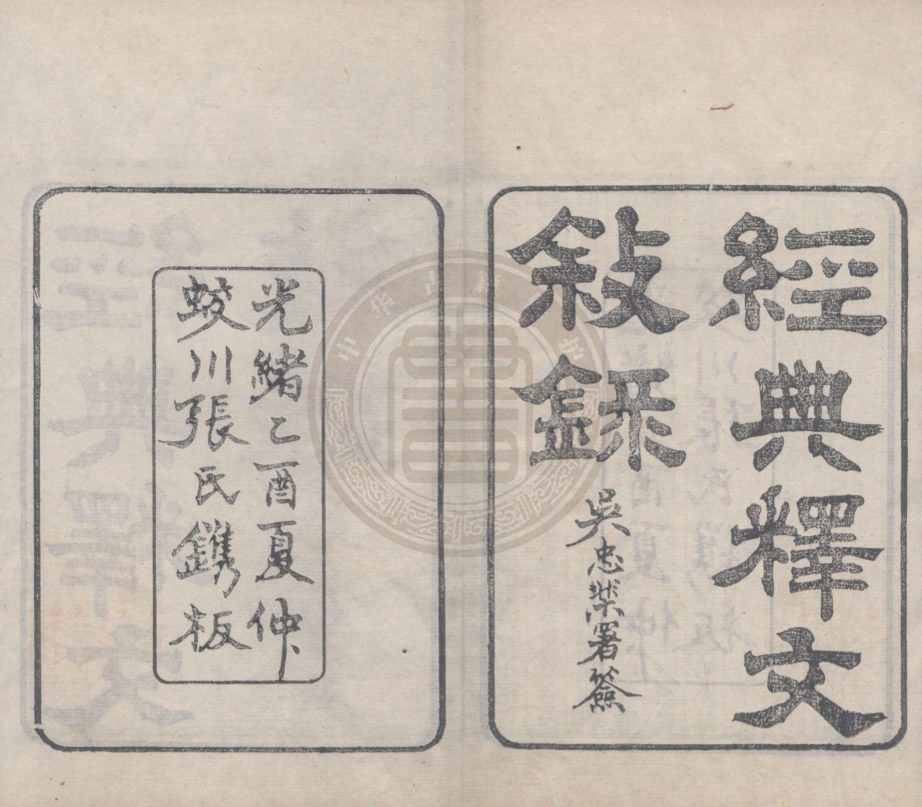 經典釋文
敍録
吳忠棨署簽
光緒乙酉夏仲
蛟川張氏鐫板